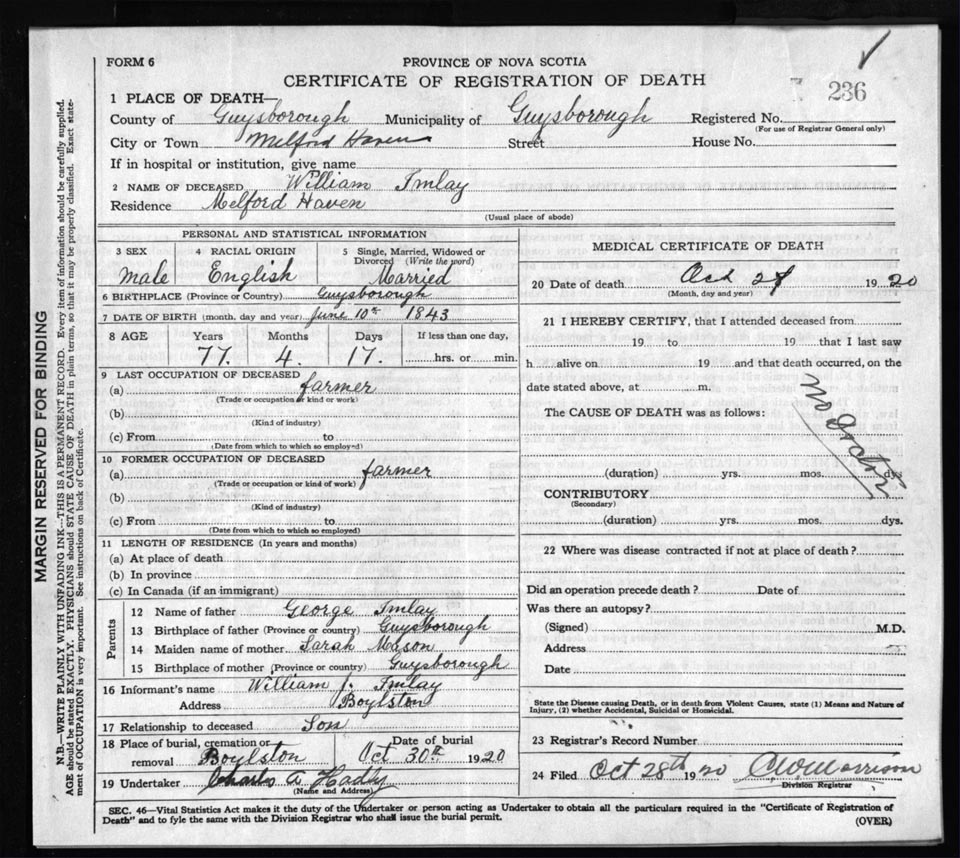 FORM 6
PROVINCE OF NOVA SCOTIA
CERTIFICATE OF REGISTRATION OF DEATH
236
1 PLACE OF DEATH—
County of Guysborough Municipality of Guysborough Registered No.
(For use of Registrar General only)
City or Town Milford Haven Street House No.
If in hospital or institution, give name
2 NAME OF DECEASED William Imlay
Residence Melford Haven
(Usual place of abode)
PERSONAL AND STATISTICAL INFORMATION
3 SEX 4 RACIAL ORIGIN 5 Single, Married, Widowed or Divorced (Write the word)
Male English Married
6 BIRTHPLACE (Province or Country) Guysborough
7 DATE OF BIRTH (month, day and year) June 10th 1843
8 AGE Years Months Days If less than one day,
77. 4. 17. hrs. or min.
9 LAST OCCUPATION OF DECEASED
(a) farmer
(Trade or occupation or kind or work)
(b)
(Kind of industry)
(c) From to
(Date from which to which so employed)
10 FORMER OCCUPATION OF DECEASED
(a) farmer
(Trade or occupation or kind of work)
(b)
(Kind of industry)
(c) From to
(Date from which to which so employed)
11 LENGTH OF RESIDENCE (In years and months)
(a) At place of death
(b) In province
(c) In Canada (if an immigrant)
Parents
12 Name of father George Imlay
13 Birthplace of father (Province or country) Guysborough
14 Maiden name of mother Sarah Mason
15 Birthplace of mother (Province or country) Guysborough
16 Informant's name William J. Imlay
Address Boylston
17 Relationship to deceased Son
18 Place of burial, cremation or removal Boylston Date of burial Oct 30th 1920
19 Undertaker Charls A Hadly
(Name and Address)
MEDICAL CERTIFICATE OF DEATH
20 Date of death Oct 27 1920
(Month, day and year)
21 I HEREBY CERTIFY, that I attended deceased from
19 to 19 that I last saw
h alive on 19 and that death occurred, on the
date stated above, at m.
The CAUSE OF DEATH was as follows:
no doctor
(duration) yrs. mos. dys
CONTRIBUTORY
(Secondary)
(duration) yrs. mos. dys.
22 Where was disease contracted if not at place of death?
Did an operation precede death? Date of
Was there an autopsy?
(Signed) M.D.
Address
Date
State the Disease causing Death, or in death from Violent Causes, state (1) Means and Nature of
Injury, (2) whether Accidental, Suicidal or Homicidal.
23 Registrar's Record Number
24 Filed Oct 28th 1920 C.W. Morrison
Division Registrar
SEC. 46—Vital Statistics Act makes it the duty of the Undertaker or person acting as Undertaker to obtain all the particulars required in the "Certificate of Registration of
Death" and to fyle the same with the Division Registrar who shall issue the burial permit.
(OVER)
MARGIN RESERVED FOR BINDING
N.B.—WRITE PLAINLY WITH UNFADING INK—THIS IS A PERMANENT RECORD. Every item of information should be carefully supplied.
AGE should be stated EXACTLY. PHYSICIANS should STATE CAUSE OF DEATH in plain terms, so that it may be properly classified. Exact statement of OCCUPATION is very important. See instructions on back of Certificate.